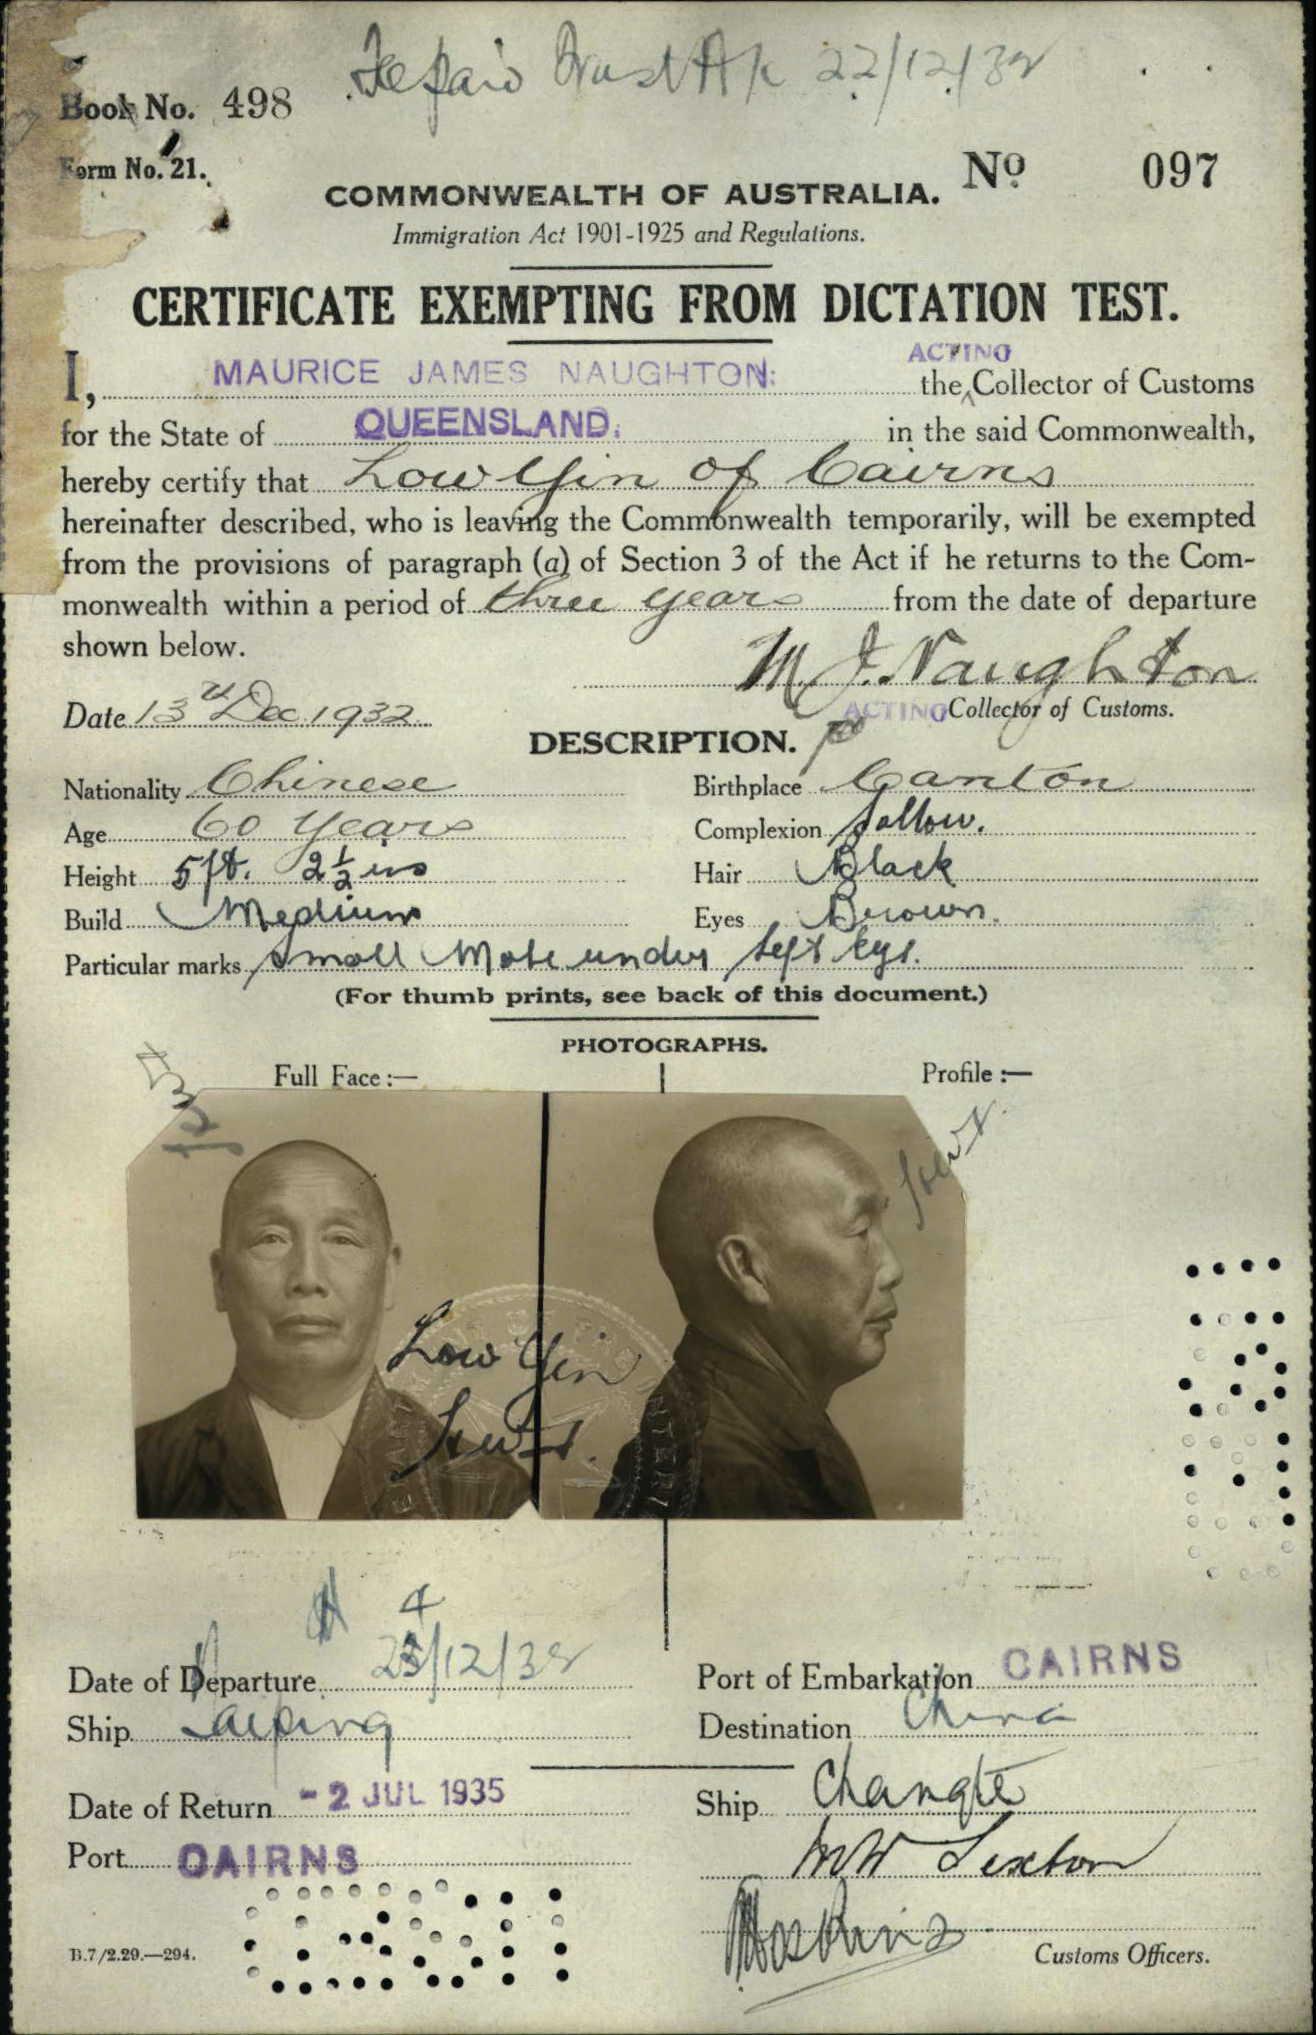 Book No. 498
22/12/32
Form No. 21.
No 097
COMMONWEALTH OF AUSTRALIA.
Immigration Act 1901-1925 and Regulations.
CERTIFICATE EXEMPTING FROM DICTATION TEST.
ACTING
I, MAURICE JAMES NAUGHTON: the Collector of Customs
for the State of QUEENSLAND. in the said Commonwealth,
hereby certify that Low Yin of Cairns
hereinafter described, who is leaving the Commonwealth temporarily, will be exempted
from the provisions of paragraph (a) of Section 3 of the Act if he returns to the Com-
monwealth within a period of three years from the date of departure
shown below.
M. J. Naughton
Date 13th Dec 1932
ACTING Collector of Customs.
DESCRIPTION.
Nationality Chinese Birthplace Canton
Age 60 years Complexion Sallow.
Height 5 ft. 2 1/2 ins Hair Black
Build Medium Eyes Brown.
Particular marks Small Mole under left eye.
(For thumb prints, see back of this document.)
PHOTOGRAPHS.
Full Face:— Profile:—
Low Yin
4
Date of Departure 23/12/32 Port of Embarkation CAIRNS
Ship Taiping Destination China
Date of Return - 2 JUL 1935 Ship Changte
Port CAIRNS
Sexton
B.7/2.29.—294.
Customs Officers.